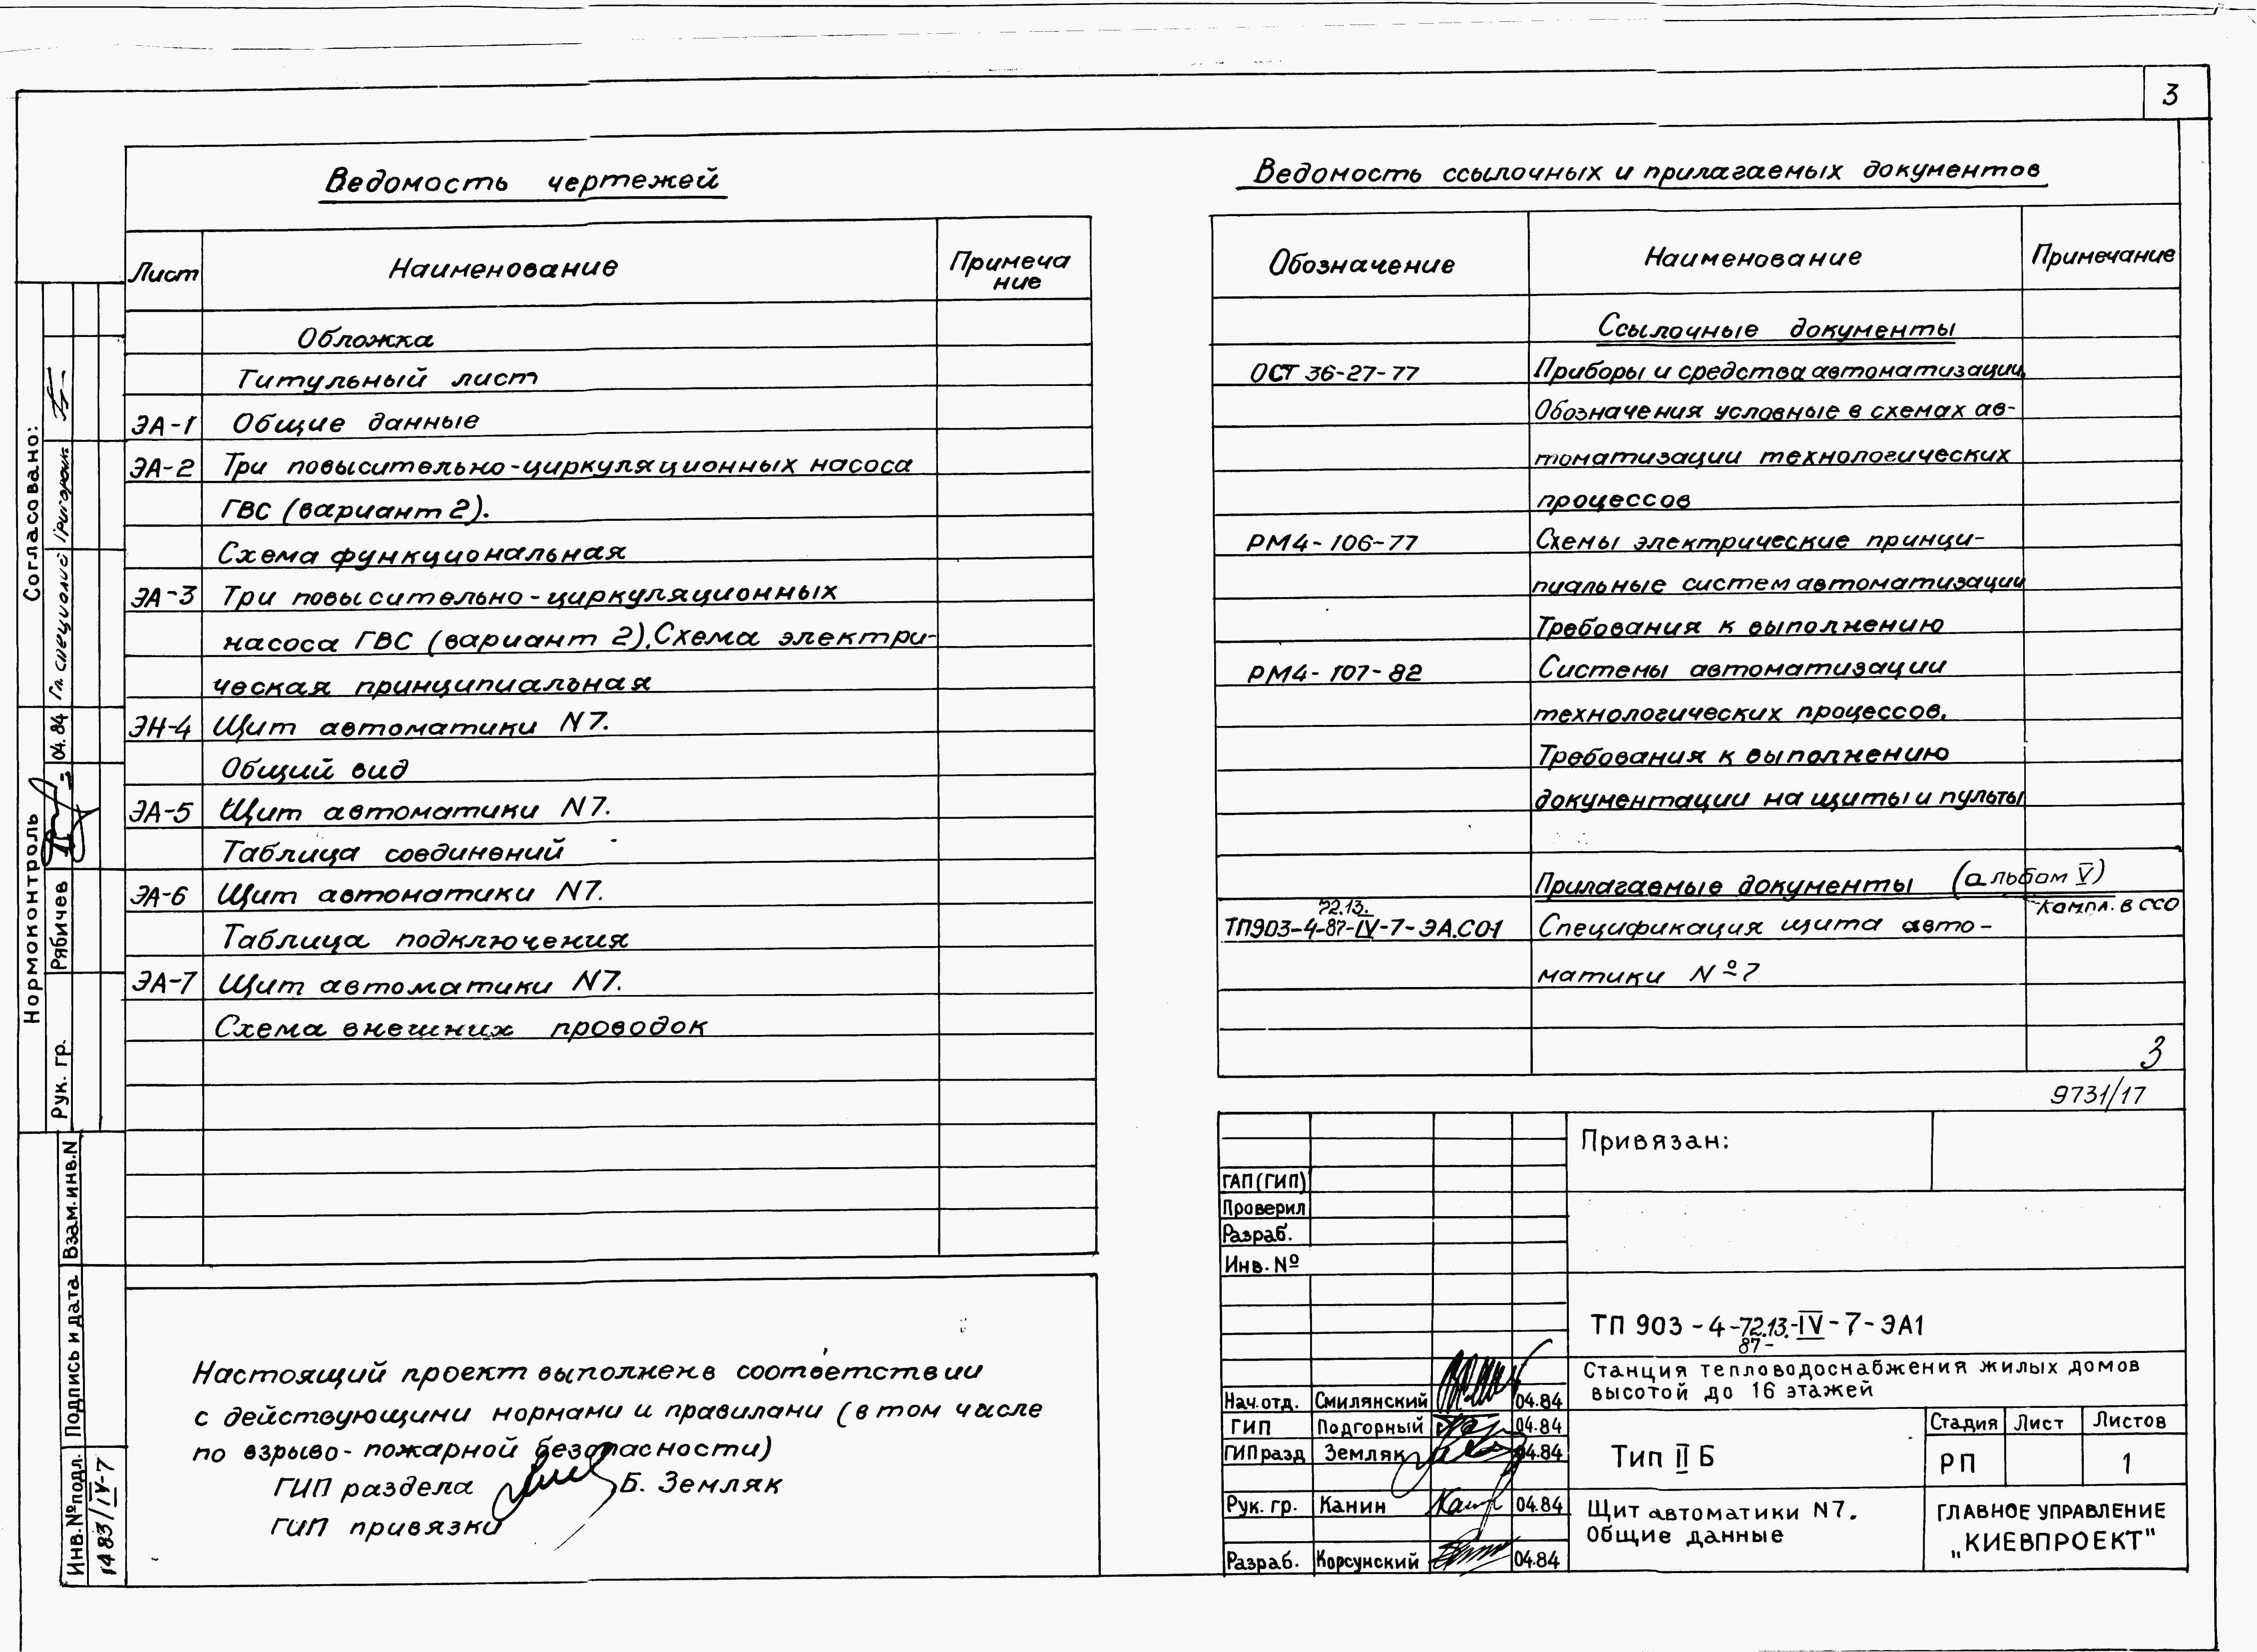 3
Ведомость чертежей
Лист
Наименование
Примеча
ние
Обложка
Титульный лист
ЭА-1 Общие данные
ЭА-2 Три повысительно-циркуляционных насоса
ГВС (вариант 2).
Схема функциональная
ЭА-3 Три повысительно-циркуляционных
насоса ГВС (вариант 2). Схема электри-
ческая принципиальная
ЭН-4 Щит автоматики N7.
Общий вид
ЭА-5 Щит автоматики N7.
Таблица соединений
ЭА-6 Щит автоматики N7.
Таблица подключения
ЭА-7 Щит автоматики N7.
Схема внешних проводок
Настоящий проект выполнен в соответствии
с действующими нормами и правилами (в том числе
по взрыво-пожарной безопасности)
ГИП раздела Б. Земляк
ГИП привязки
Ведомость ссылочных и прилагаемых документов
Обозначение
Наименование
Примечание
Ссылочные документы
ОСТ 36-27-77 Приборы и средства автоматизации.
Обозначения условные в схемах ав-
томатизации технологических
процессов
РМ4-106-77 Схемы электрические принци-
пиальные систем автоматизации
Требования к выполнению
РМ4-107-82 Системы автоматизации
технологических процессов.
Требования к выполнению
документации на щиты и пульты
Прилагаемые документы (альбом V)
72.13.
ТП903-4-87-IV-7-ЭА.СО1 Спецификация щита авто-
Компл. в ССО
матики №7
3
9731/17
Привязан:
ГАП (ГИП)
Проверил
Разраб.
Инв. №
ТП 903-4-72.13.-IV-7-ЭА1
87-
Станция тепловодоснабжения жилых домов
высотой до 16 этажей
Нач. отд. Смилянский 04.84
ГИП Подгорный 04.84
ГИП разд Земляк 04.84
Рук. гр. Канин 04.84
Разраб. Корсунский 04.84
Тип II Б
Стадия Лист Листов
РП 1
Щит автоматики N7.
Общие данные
ГЛАВНОЕ УПРАВЛЕНИЕ
„КИЕВПРОЕКТ"
Согласовано:
Гл. специалист
Нормоконтроль
Рук. гр. Рябичев 04.84
Взам. инв. N
Подпись и дата
Инв. № подл.
1483/IV-7